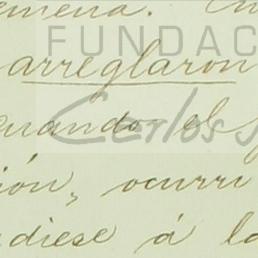 emena. En
FUNDAC
arreglaron
Carlos
cuando el
ión, ocurri
diese á la